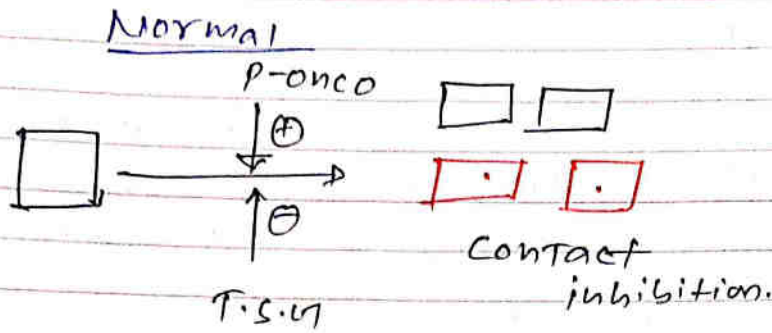 Normal
P-onco
⊕
⊖
Contact
inhibition.
T.S.G